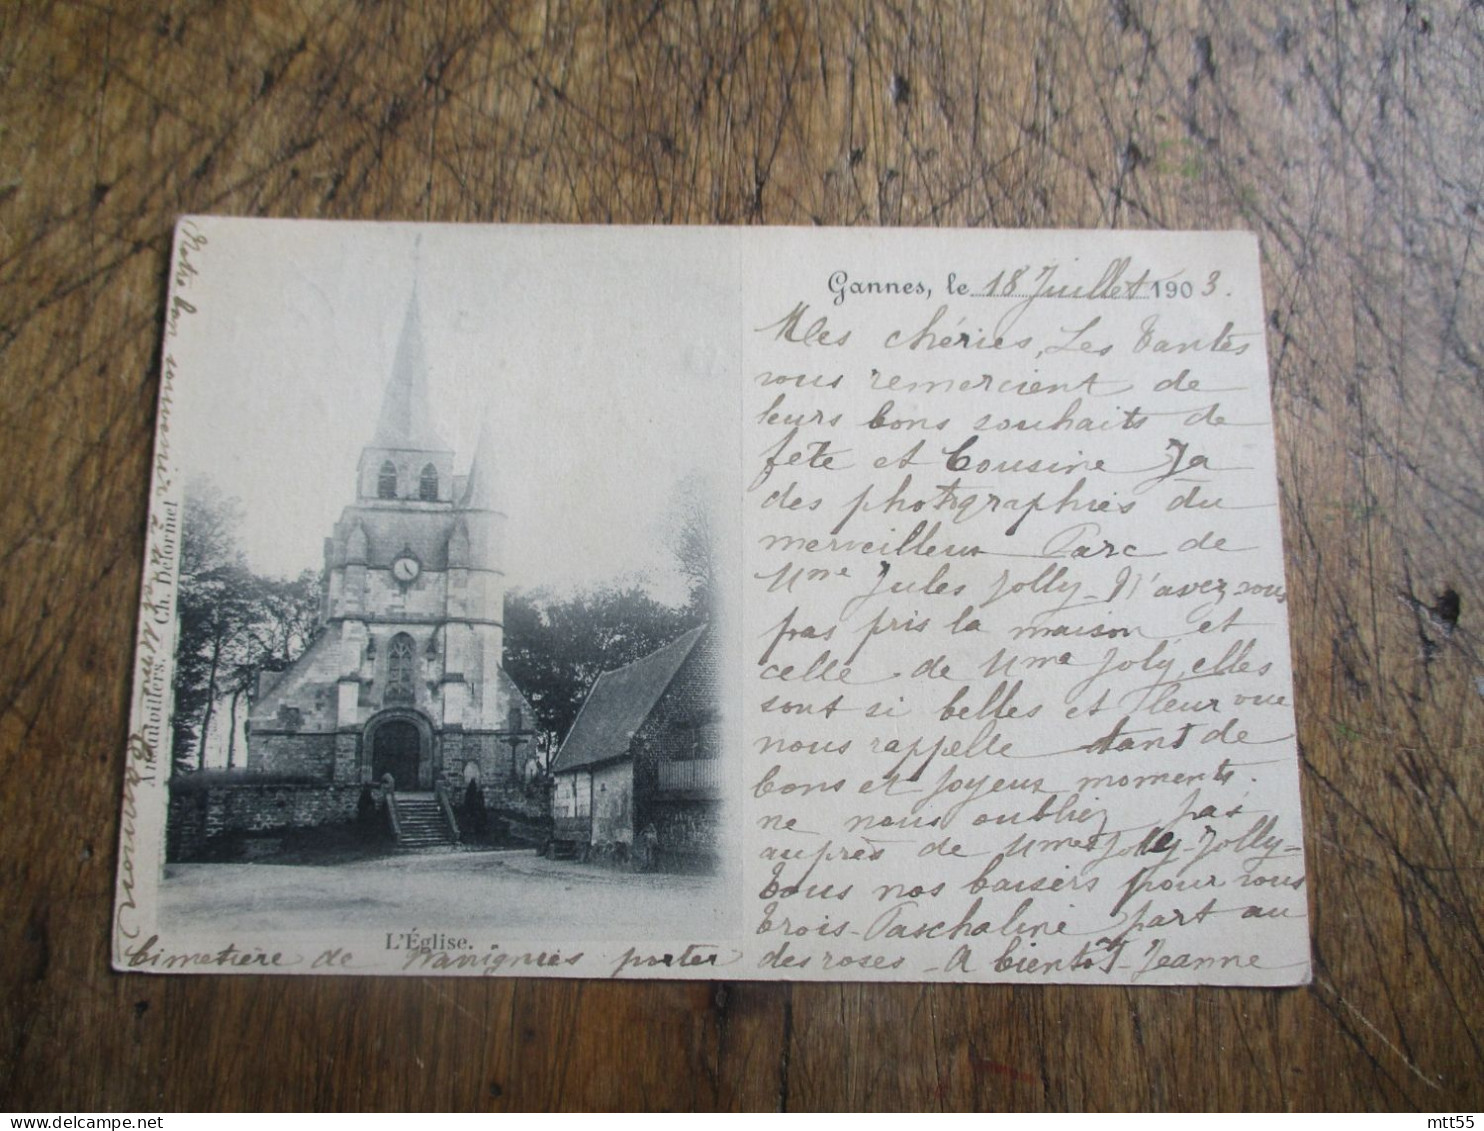 Gannes, le 18 Juillet 1903.
Mes chéries, Les Tantes
vous remercient de
leurs bons souhaits de
fête et Cousine Ja
des photographies du
merveilleux Parc de
Mme Jules Jolly - N'avez vous
pas pris la maison et
celle de Mme Joly, elles
sont si belles et leur vue
nous rappelle tant de
bons et joyeux moments.
ne nous oubliez pas
auprès de Mmes Jolly - Jolly -
Tous nos baisers pour vous
trois - Paschaline part au
Cimetière de Wavignies porter des roses - A bientôt - Jeanne
L'Église.
Notre bon souvenir à
Ansauvillers. Ch. Delormel
mtt55